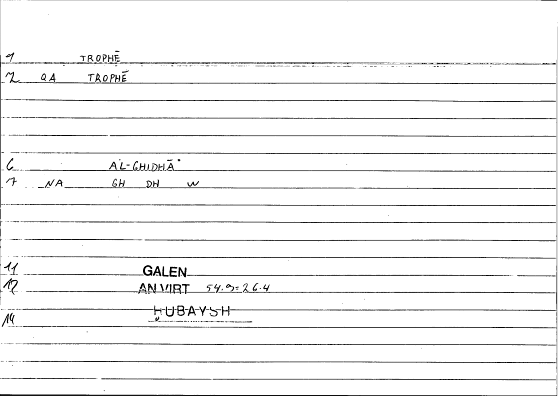 1 TROPHĒ
2 QA TROPHĒ
6 AL-GHIDHĀʾ
7 NA GH DH W
11 GALEN
12 AN VIRT 54.9=26.4
14 ḤUBAYSH